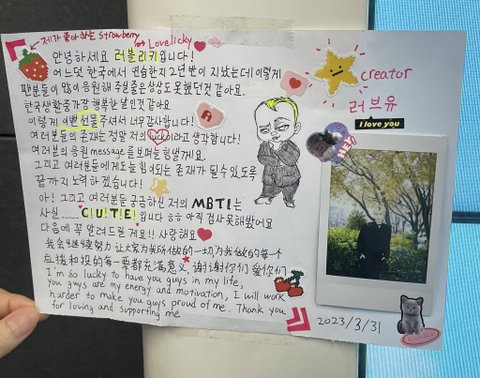 제가 좋아하는 strawberry
Lovelicky
안녕하세요 러블리키입니다!
어느덧 한국에서 연습한지 2년 반이 지났는데 이렇게
팬분들이 많이 응원해주실줄은 상상도 못했던것 같아요.
한국생활중 가장 행복한 날인것 같아요
이렇게 이쁜 선물 주셔서 너무 감사합니다!
여러분들의 존재는 정말 저의 lucky이라고 생각합니다!
여러분의 응원 message를 보며 늘 힘낼게요.
그리고 여러분들에게도 늘 힘이되는 존재가 될수있도록
끝까지 노력하겠습니다!
아! 그리고 여러분들 궁금하신 저의 MBTI는
사실...... "C|U|T|E"입니다 ㅎㅎ 아직 검사 못해봤어요
다음에 꼭 알려드릴게요!! 사랑해요
我会继续努力 让大家为我所做的一切为我做的每个
应援和投的每一票都充满意义 谢谢你们 爱你们
I'm so lucky to have you guys in my life,
you guys are my energy and motivation, I will work
harder to make you guys proud of me. Thank you
for loving and supporting me
A
creator
러브유
I love you
2023/3/31